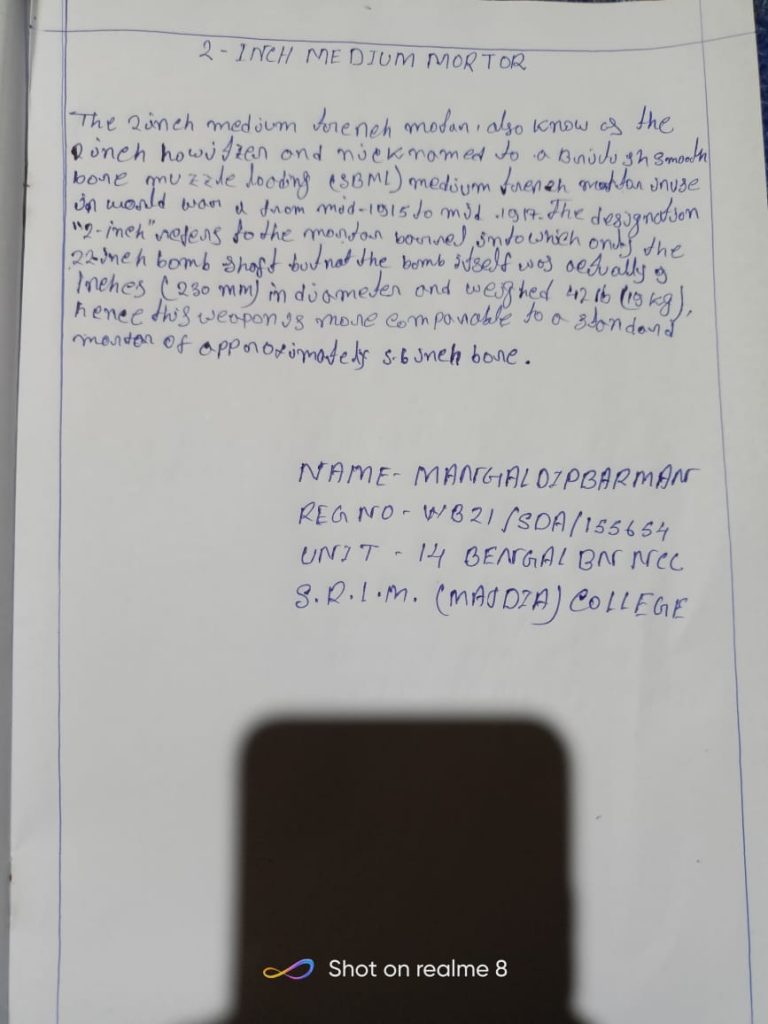 2-INCH MEDIUM MORTOR
The 2inch medium trench motar, also know as the
2 inch howitzer and nicknamed to a British smooth
bore muzzle loading (SBML) medium trench mortar inuse
in world war 1 from mid-1915 to mid .1917. The designation
"2-inch" refers to the mortar barrel into which only the
22inch bomb shaft but not the bomb itself was actually 9
Inches (230 mm) in diameter and weighed 42 lb (19 kg),
hence this weapon is more comparable to a standard
mortar of approximately 5.6 inch bore.
NAME- MANGALDIPBARMAN
REG NO - WB21/SDA/155654
UNIT - 14 BENGAL BN NCC
S.R.L.M. (MAJDIA) COLLEGE
Shot on realme 8